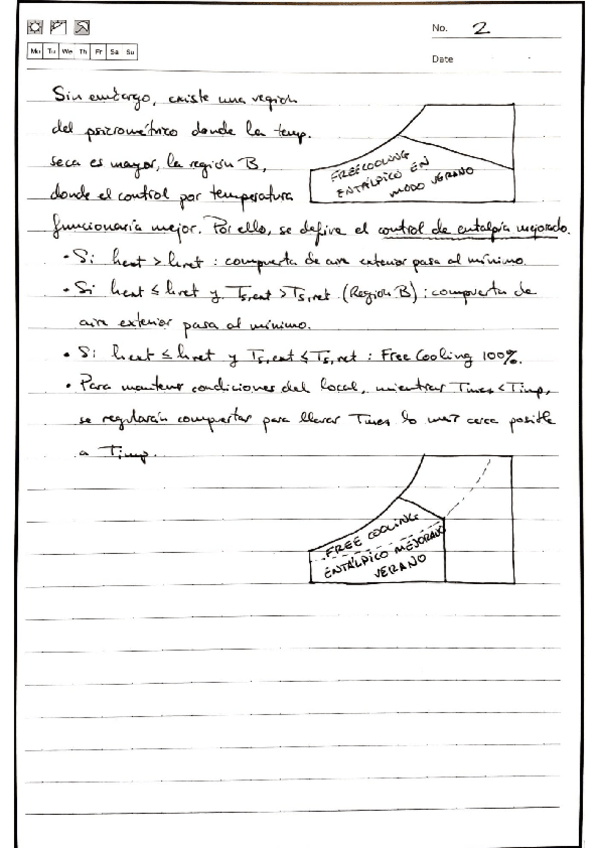 No. 2
Mo Tu We Th Fr Sa Su
Date
Sin embargo, existe una region
del psicrométrico donde la temp.
seca es mayor, la región B,
donde el control por temperatura
funcionaría mejor. Por ello, se define el control de entalpía mejorado.
FREECOOLING
ENTÁLPICO EN
MODO VERANO
• Si hext > hret : compuerta de aire exterior pasa al mínimo.
• Si hext ≤ hret y Ts,ext > Ts,ret (Region B) : compuerta de
aire exterior pasa al mínimo.
• Si hext ≤ hret y Ts,ext ≤ Ts,ret : Free Cooling 100%.
• Para mantener condiciones del local, mientras Tmez < Timp,
se regularán compuertas para llevar Tmez lo más cerca posible
a Timp.
FREE COOLING
ENTÁLPICO MEJORADO
VERANO